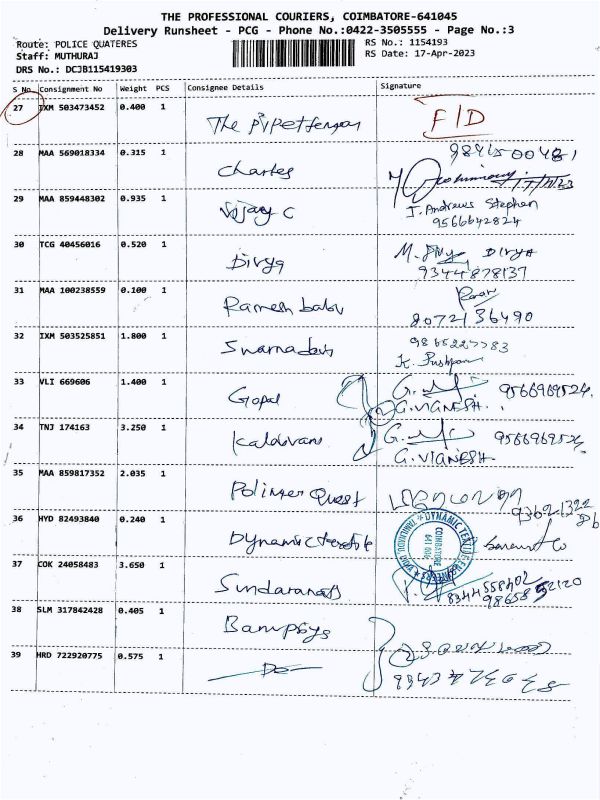 THE PROFESSIONAL COURIERS, COIMBATORE-641045
Delivery Runsheet - PCG - Phone No.:0422-3505555 - Page No.:3
Route: POLICE QUATERES RS No.: 1154193
Staff: MUTHURAJ RS Date: 17-Apr-2023
DRS No.: DCJB115419303
S No. Consignment No Weight PCS Consignee Details Signature
27 IXM 503473452 0.400 1 The F/D
28 MAA 569018334 0.315 1 Charles
29 MAA 859448302 0.935 1 Vijay C J. Andrews Stephen
9566642824
30 TCG 40456016 0.520 1 Divya M. DIVYA
9344878137
31 MAA 100238559 0.100 1 Ramesh babu
8072136490
32 IXM 503525851 1.800 1
K. Pushpam
33 VLI 669606 1.400 1 Gopal G.VIGNESH. 9566969524.
34 TNJ 174163 3.250 1 9566969524
G.VIGNESH.
35 MAA 859817352 2.035 1 Polimer Quest
36 HYD 82493840 0.240 1 Dynamic DYNAMIC COIMBATORE
37 COK 24058483 3.650 1 8344558402
38 SLM 317842428 0.405 1
39 HRD 722920775 0.575 1 Do